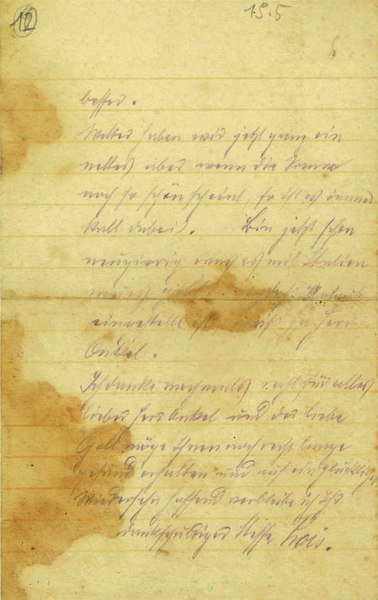 12
15.5
besser.
Wetter haben wir jetzt ganz ein
aber wenn die Sonne
noch so schön scheint, so ist es immer
kalt dabei. Bin jetzt schon
neugierig was es mit Italien
Herr
Onkel.
Ich danke nochmals recht für alles
lieber Herr Onkel und der liebe
Gott möge ihnen noch recht lange
gesund erhalten und auf ein glückliches
Wiedersehn hoffend verbleibe ich ihr
dankschuldiger Neffe Lois.